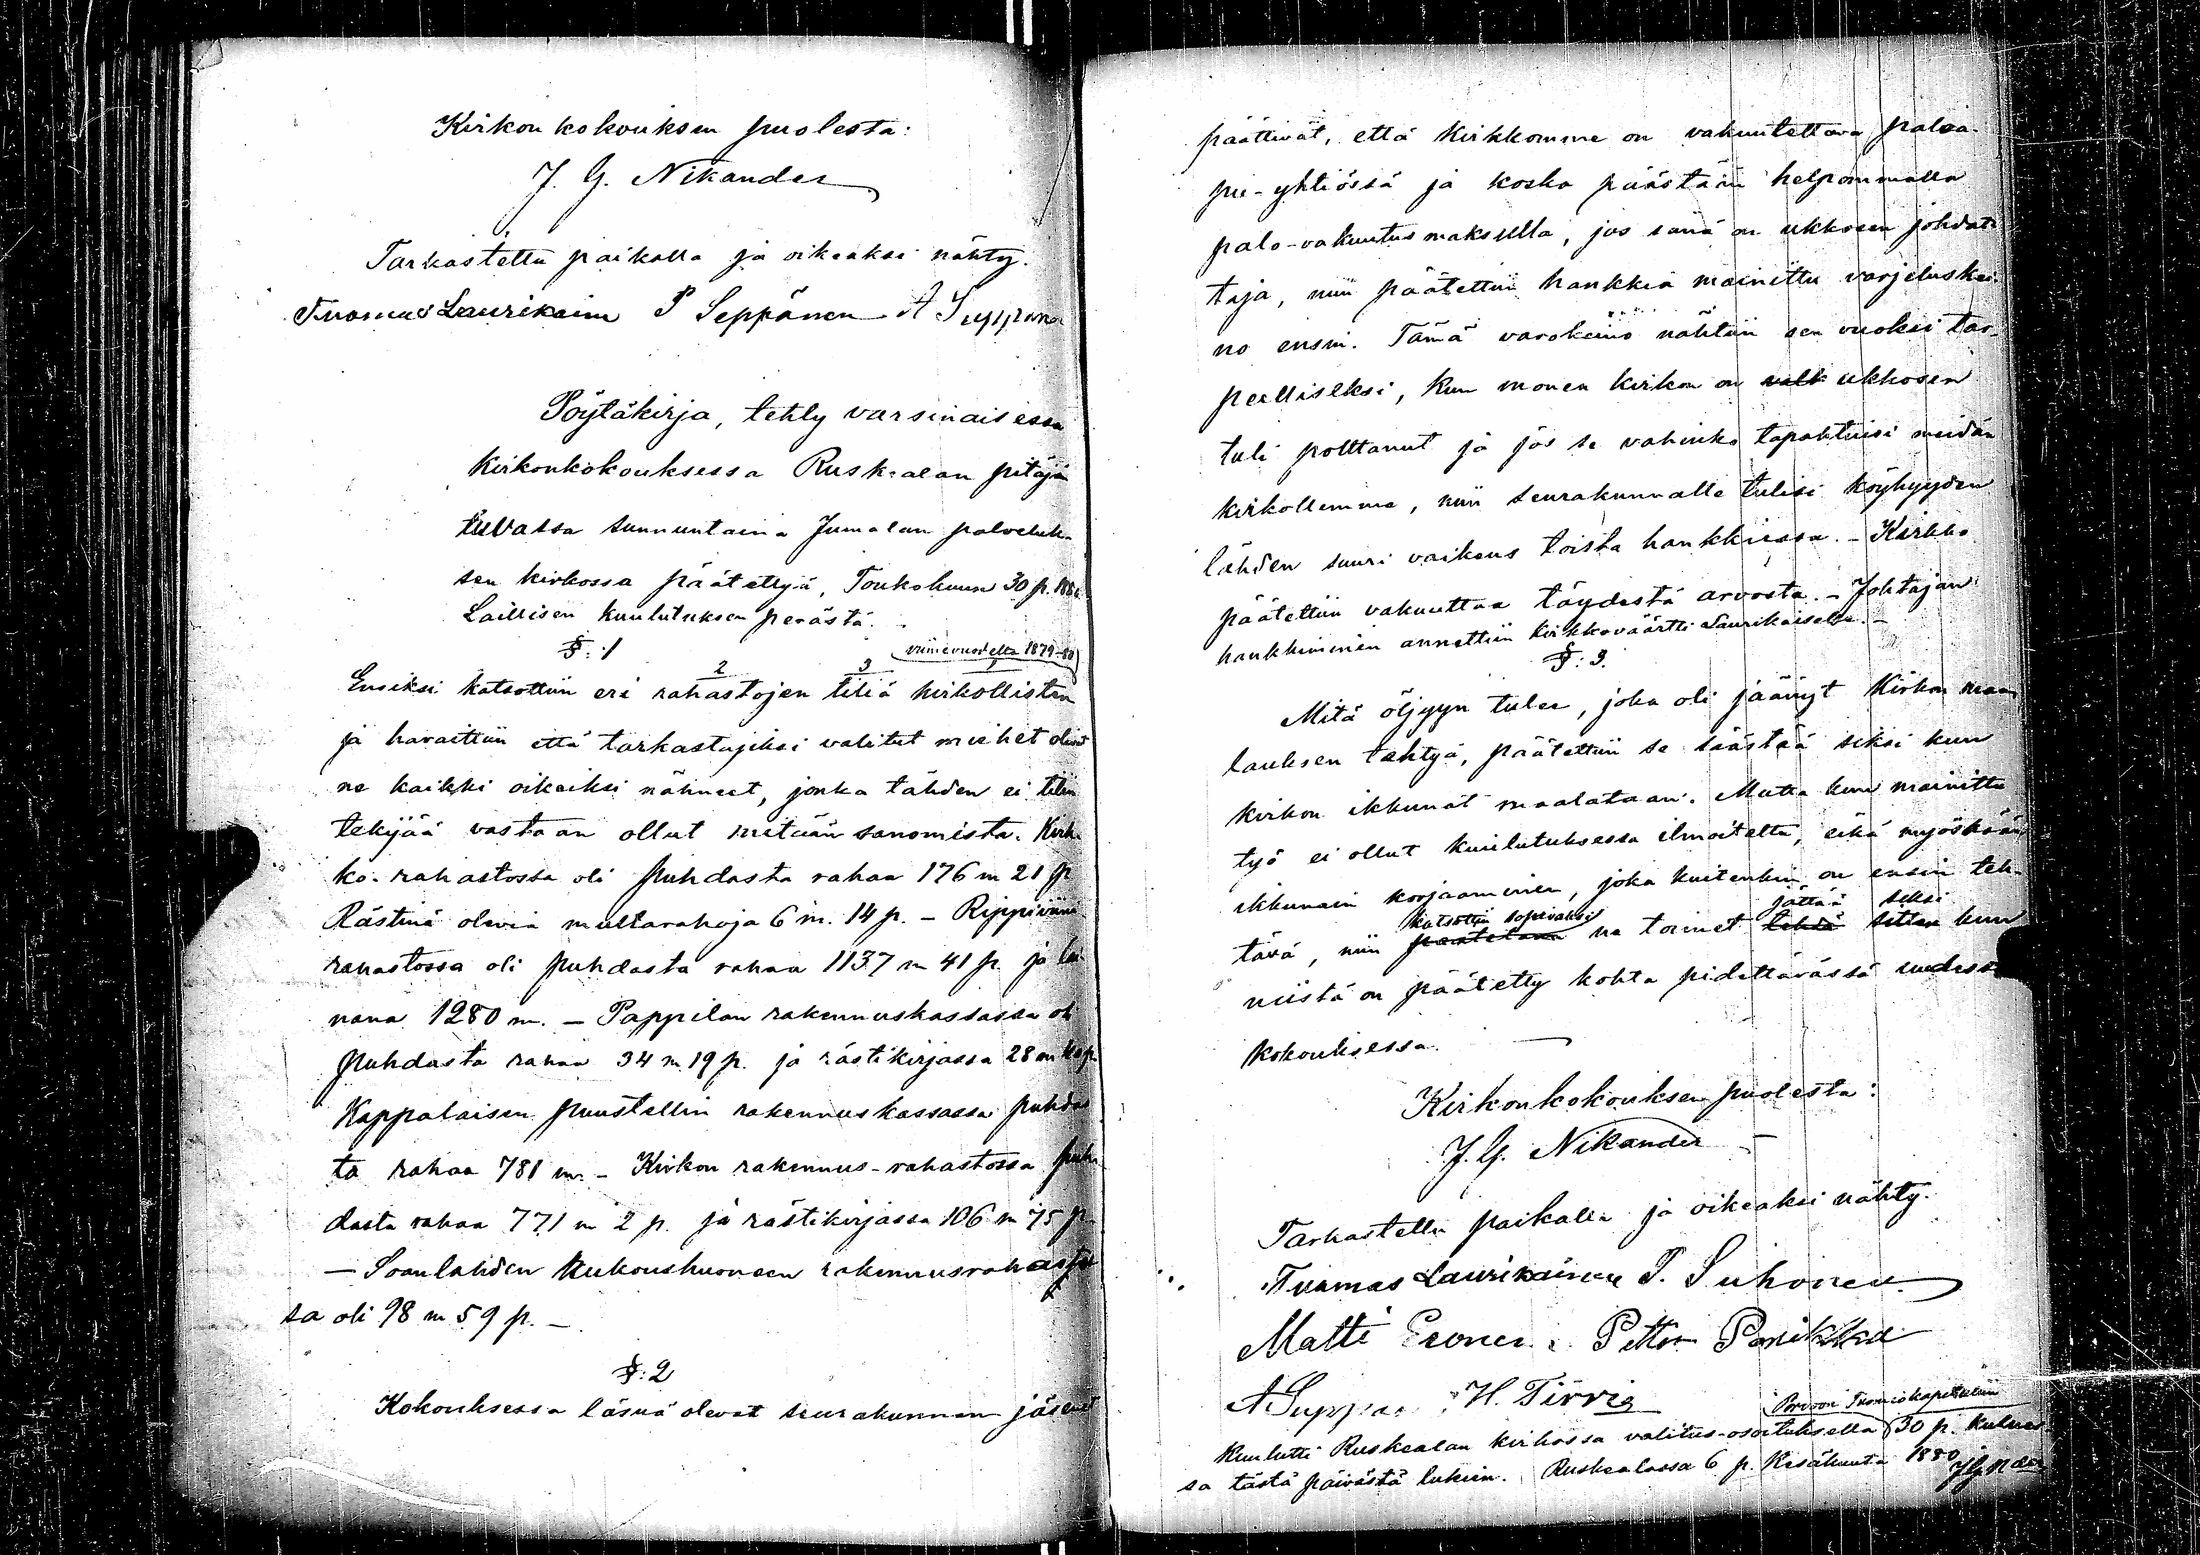 Kirkon kokouksen puolesta:
J. G. Nikander
Tarkastettu paikalla ja oikeaksi nähty.
Tuomas Laurikain P Seppänen A Suppone
Pöytäkirja, tehty varsinaisessa
Kirkonkokouksessa Ruskealan pitäjän
tuvassa sunnuntaina Jumalan palveluk-
sen kirkossa päätettyä, Toukokuun 30 p. 1880.
Laillisen kuulutuksen perästä.
§: 1
viime vuodelta 1879-80
2 3 1
Ensiksi katsottiin eri rahastojen tiliä kirkollisten
ja havaittiin että tarkastajiksi valitut miehet olivat
ne kaikki oikeiksi nähneet, jonka tähden ei tilin
tekijää vastaan ollut mitään sanomista. Kirk-
ko-rahastossa oli puhdasta rahaa 176 m 21 p
Rästinä olevia multarahoja 6 m. 14 p. – Rippiviini
rahastossa oli puhdasta rahaa 1137 m 41 p. ja lai-
nana 1280 m. – Pappilan rakennuskassassa oli
puhdasta rahaa 34 m 19 p. ja rästikirjassa 28 m
Kappalaisen puustellin rakennuskassassa puhdas-
ta rahaa 781 m. – Kirkon rakennus-rahastossa puh-
dasta rahaa 771 m 2 p. ja rästikirjassa 106 m 75 p
– Soanlahden Rukoushuoneen rakennusrahastos-
sa oli 98 m 59 p. –
§: 2
Kokouksessa läsnä olevat seurakunnan jäsenet
päättivät, että Kirkkomme on vakuutettava paloa-
pu-yhtiössä ja koska päästään helpommalla
palo-vakuutusmaksulla, jos siinä on ukkosen johdat-
taja, niin päätettiin hankkia mainittu varjeluskei-
no ensin. Tämä varokeino nähtiin sen vuoksi tar-
peelliseksi, kun monen kirkon on valk ukkosen
tuli polttanut ja jos se vahinko tapahtuisi meidän
kirkollemme, niin seurakunnalle tulisi köyhyyden
tähden suuri vaikeus toista hankkiessa. – Kirkko
päätettiin vakuuttaa täydestä arvosta. – Johtajan
hankkiminen annettiin Kirkkoväärtti Laurikaiselle. –
§: 3.
Mitä öljyyn tulee, joka oli jäänyt Kirkon maa-
lauksen tehtyä, päätettiin se säästää siksi kun
kirkon ikkunat maalataan. Mutta kun mainittu
työ ei ollut kuulutuksessa ilmoitettu, eikä myöskään
ikkunain korjaaminen, joka kuitenkin on ensin teh-
katsottiin sopivaksi jättää siksi
tävä, niin päätetään ne toimet tehdä sitten kun
niistä on päätetty kohta pidettävässä uudessa
kokouksessa. –
Kirkonkokouksen puolesta:
J. G. Nikander –
Tarkastettu paikalla ja oikeaksi nähty.
Tuomas Laurikainen P. Suhonen.
Matti Eronen Petter Parikka
A Suppone H. Tirvig
Porvoon Tuomiokapituliin
Kuulutti Ruskealan kirkossa valitus-osoituksella 30 p. kulues-
sa tästä päivästä lukein. Ruskealassa 6 p. Kesäkuuta 1880 J G Nder